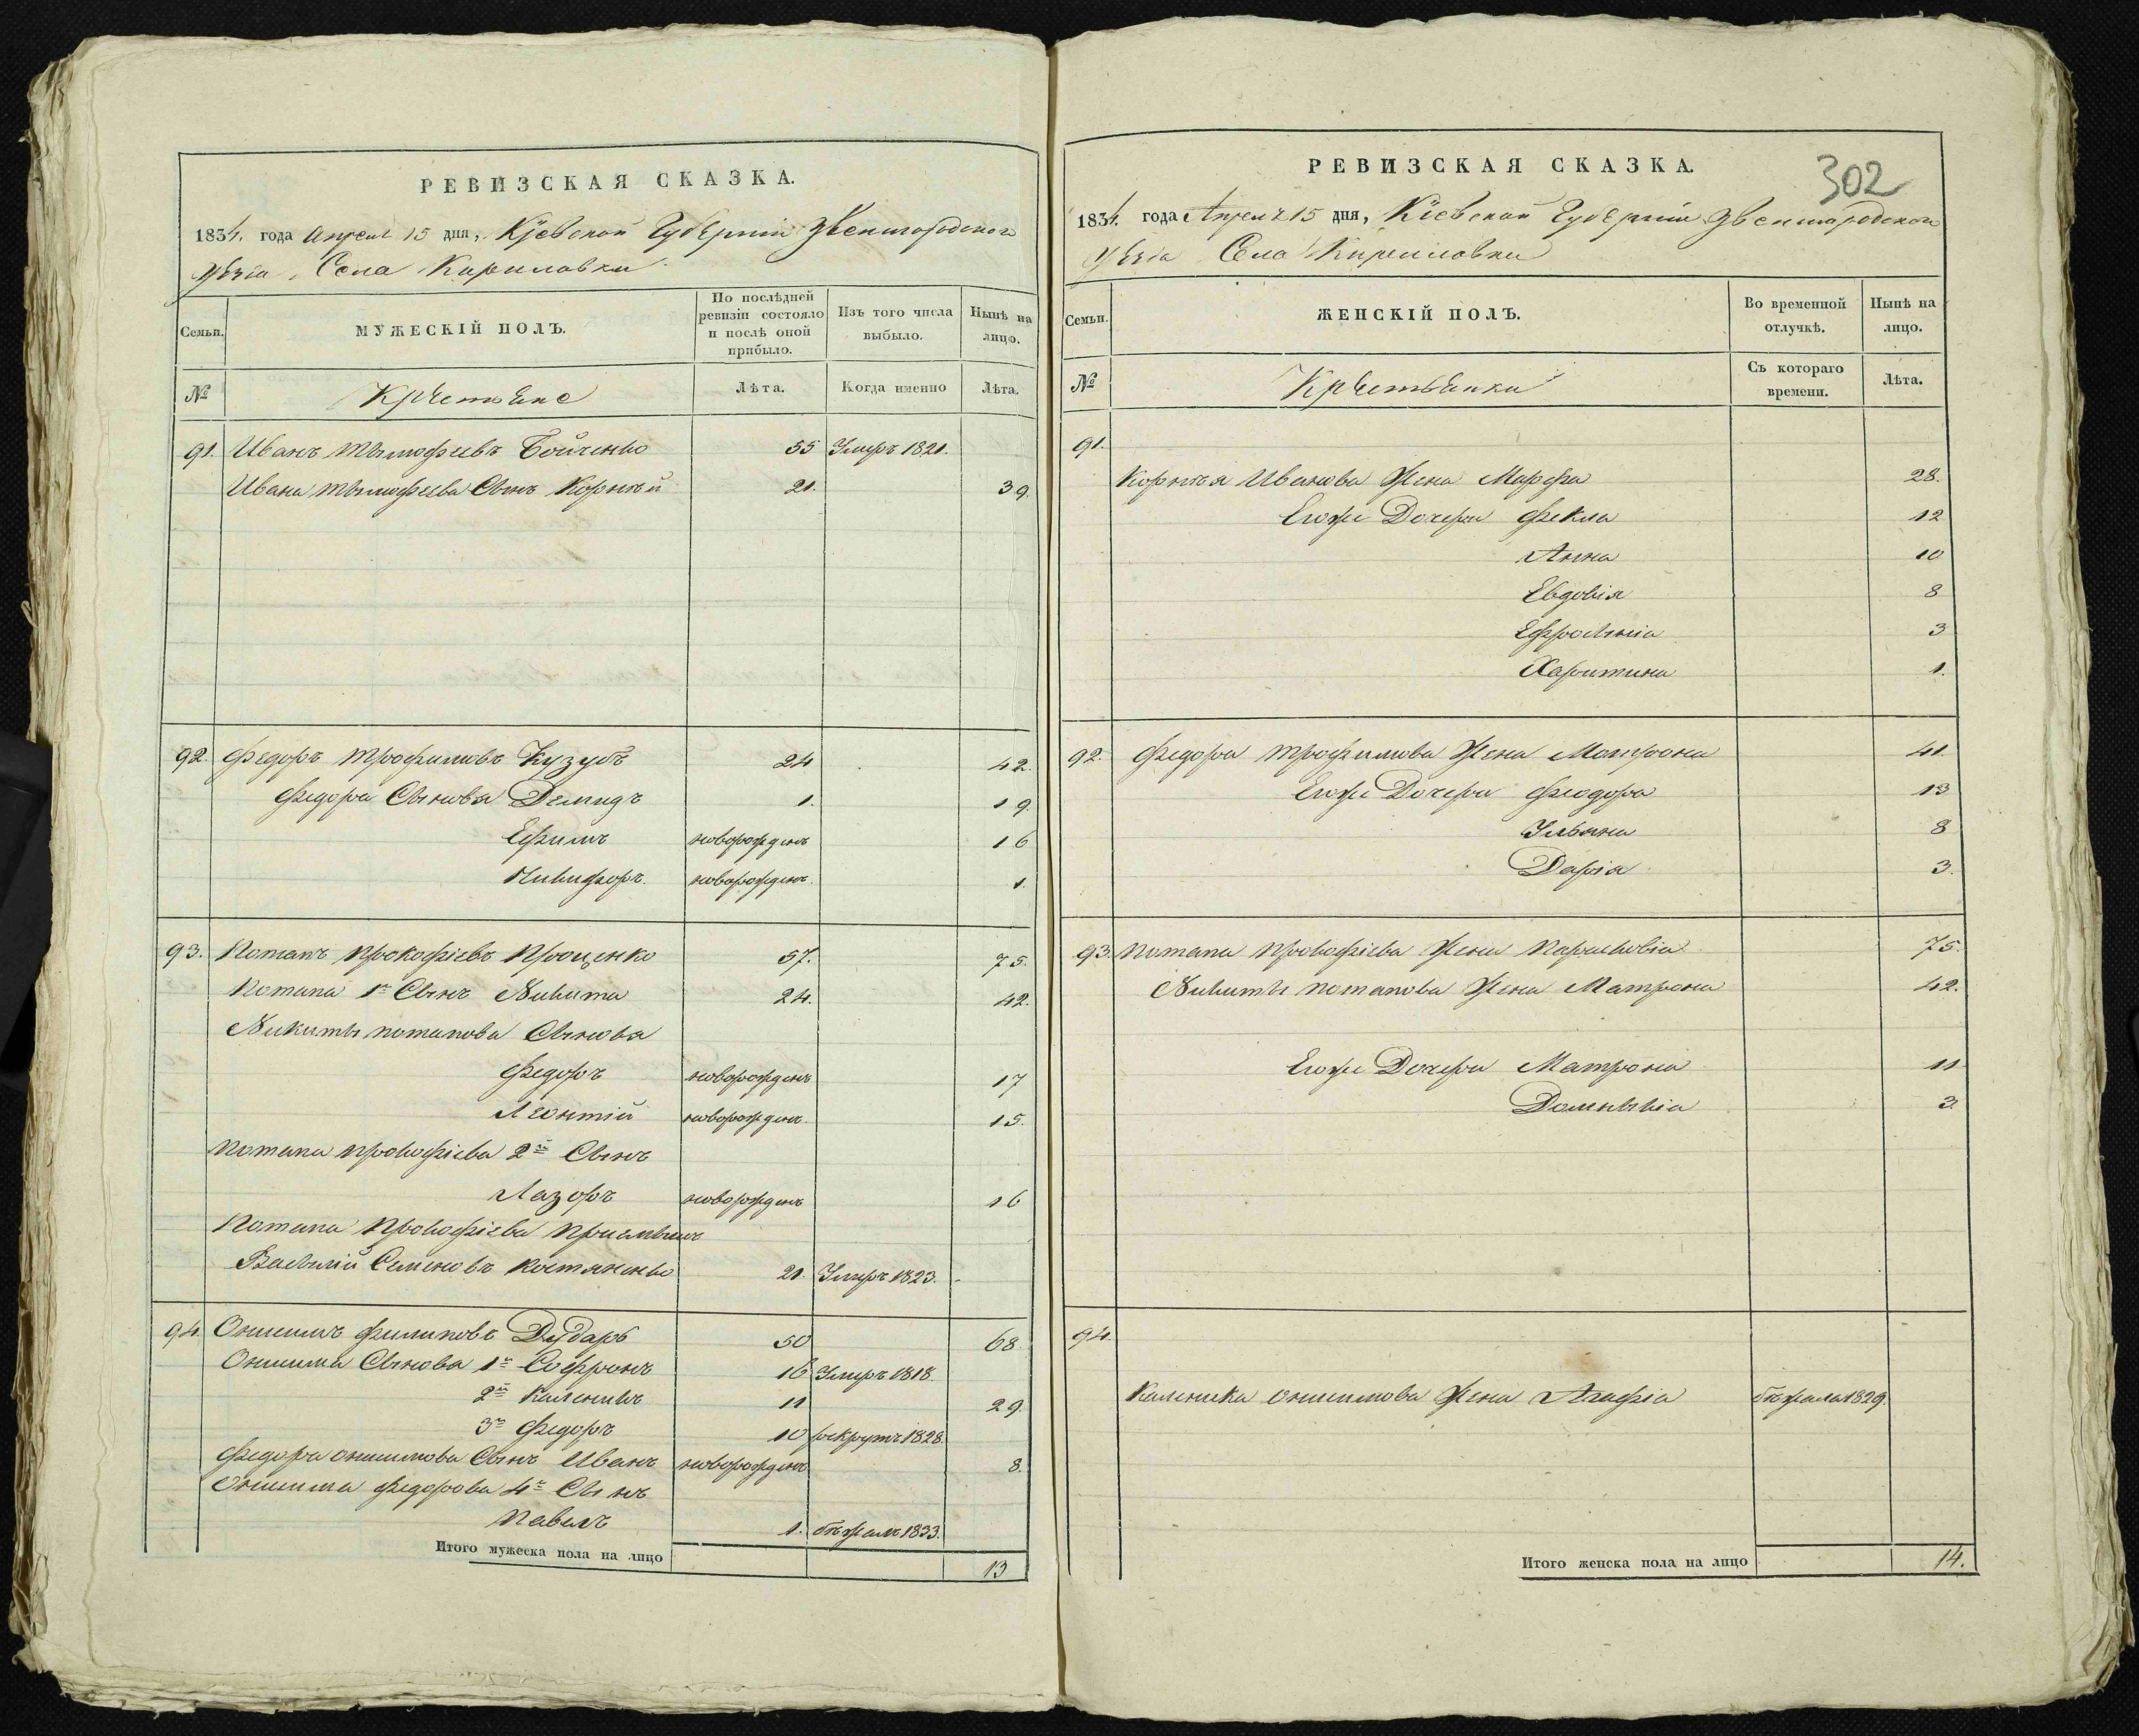 РЕВИЗСКАЯ СКАЗКА.
1834. года Апреля 15 дня, Кіевской Губерніи Звенигородского
уѣзда Села Кириловки
Семьи.
МУЖЕСКІЙ ПОЛЪ.
По послѣдней ревизіи состояло и послѣ оной прибыло.
Изъ того числа выбыло.
Нынѣ на лицо.
№
Крестьяне
Лѣта.
Когда именно
Лѣта.
91. Иванъ Тымофеевъ Бойченко 55 Умеръ 1821.
Ивана Тымофеева Сынъ Корнѣй 21. 39.
92. Федоръ Трофимовъ Кузубъ 24 42.
Федора Сыновья Демидъ 1. 19.
Ефимъ новорожденъ 16
Никифоръ. новорожденъ. 1.
93. Потапъ Прокофіевъ Прощенко 57. 75.
Потапа 1й Сынъ Никита 24. 42.
Никиты Потапова Сыновья
Федоръ новорожденъ 17
Леонтій новорожденъ. 15.
Потапа Прокофіева 2й Сынъ
Лазоръ новорожденъ 16
Потапа Прокофіева Приемышъ
Василій Семеновъ Костяненко 21. Умеръ 1823.
94. Онисимъ Филиповъ Дударь 50 68.
Онисима Сынова 1й Софронъ 16 Умеръ 1818.
2й Каленикъ 11 29.
3й Федоръ 10 рекрутъ 1828.
Федора Онисимова Сынъ Иванъ новорожденъ 8.
Онисима Федорова 4й Сынъ
Павелъ 1. бѣжалъ 1833.
Итого мужеска пола на лицо 13
302
РЕВИЗСКАЯ СКАЗКА.
1834. года Апреля 15 дня, Кіевской Губерніи Звенигородского
уѣзда Села Кириловки
Семьи.
ЖЕНСКІЙ ПОЛЪ.
Во временной отлучкѣ.
Нынѣ на лицо.
№
Крестьянки
Съ котораго времени.
Лѣта.
91.
Корнѣя Иванова Жена Марфа 28.
Егоже Дочери Фекла 12
Анна 10
Евдокія 8
Ефросинія 3
Харитина 1.
92. Федора Трофимова Жена Матрона 41.
Егоже Дочери Феодора 13
Ульяна 8
Дарія 3.
93. Потапа Прокофіева Жена Парасковія 75.
Никиты Потапова Жена Матрона 42.
Егоже Дочери Матрона 11
Домникія 3.
94.
Каленика Онисимова Жена Агафія бѣжала 1829.
Итого женска пола на лицо 14.